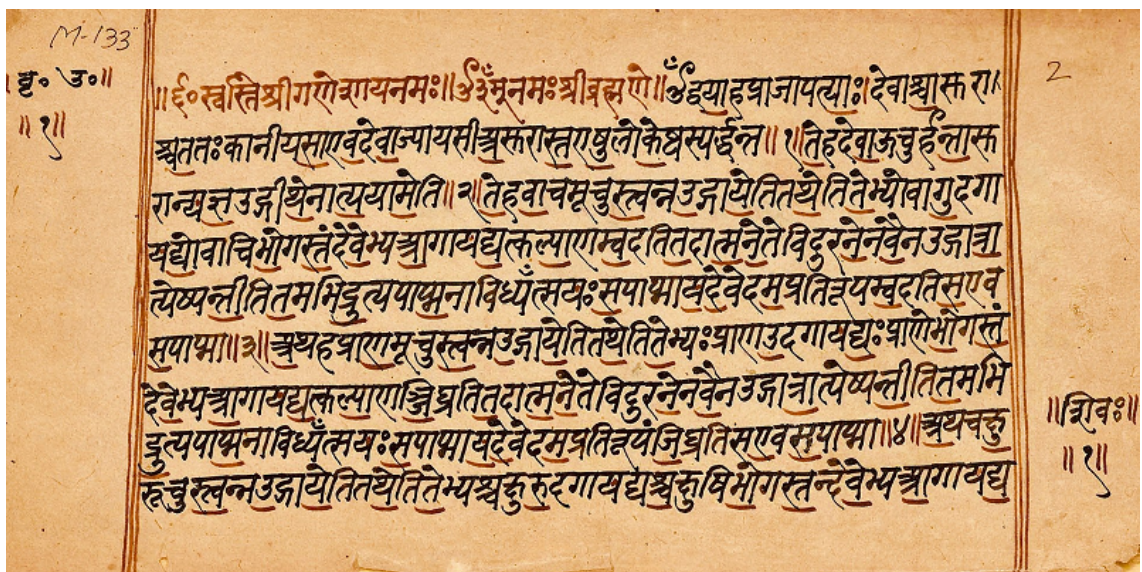 M-133
बृ॰ उ॰॥
॥१॥
2
॥६॰स्वस्तिश्रीगणेशायनमः॥ॐनमःश्रीब्रह्मणे॥ॐद्वयाहप्राजापत्याः।देवाश्चासुरा।
श्चततःकानीयसाएवदेवाज्यायसीअसुरास्तएषुलोकेष्वस्पर्द्धन्त॥१॥तेहदेवाऊचुर्हन्तासु
रान्यज्ञउद्गीथेनात्ययामेति॥२॥तेहवाचमूचुस्त्वन्नउद्गायेतितथेतितेभ्योवागुदगा
यद्योवाचिभोगस्तंदेवेभ्यआगायद्यत्कल्याणम्वदतितदात्मनेतेविदुरनेनवैनउद्गात्रा
त्येष्यन्तीतितमभिद्रुत्यपाप्मनाविध्यँत्सयःसपाप्मायदेवेदमप्रतिरूपम्वदतिसएव
सपाप्मा॥३॥अथहप्राणमूचुस्त्वन्नउद्गायेतितथेतितेभ्यःप्राणउदगायद्यःप्राणेभोगस्तं
देवेभ्यआगायद्यत्कल्याणञ्जिघ्रतितदात्मनेतेविदुरनेनवैनउद्गात्रात्येष्यन्तीतितमभि
द्रुत्यपाप्मनाविध्यँत्सयःसपाप्मायदेवेदमप्रतिरूपंजिघ्रतिसएवसपाप्मा॥४॥अथचक्षु
रूचुस्त्वन्नउद्गायेतितथेतितेभ्यश्चक्षुरुदगायद्यश्चक्षुषिभोगस्तन्देवेभ्यआगायद्य
॥शिवः॥
॥१॥